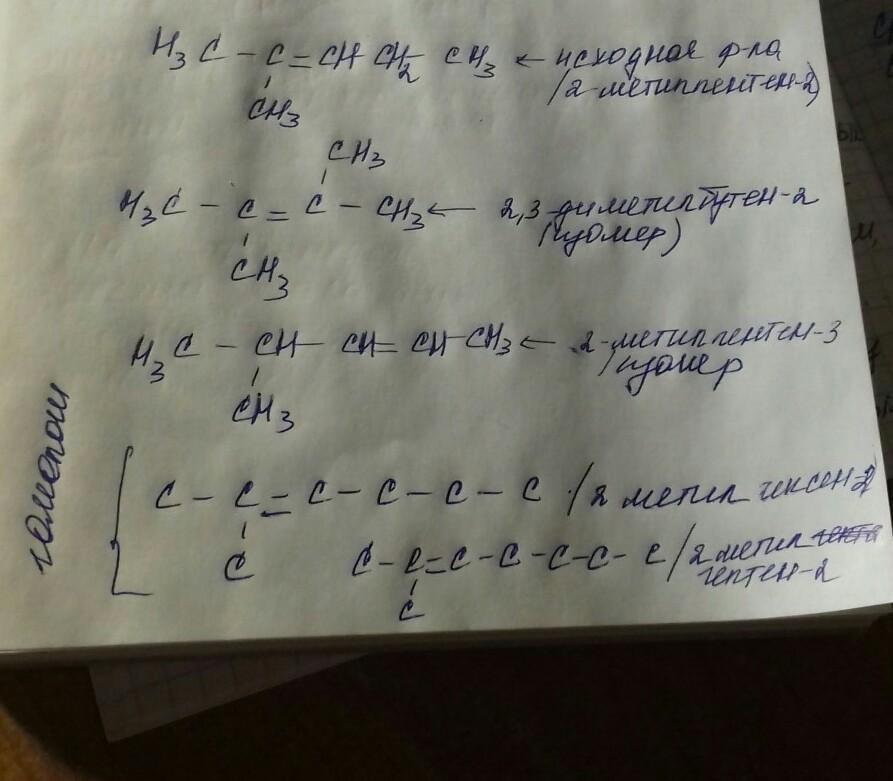 H3C - C = CH CH2 CH3 ← исходная ф-ла
CH3
/2-метилпентен-2)
CH3
H3C - C = C - CH3 ← 2,3-диметилбутен-2
CH3
(изомер)
H3C - CH - CH = CH - CH3 ← 2-метилпентен-3
CH3
/изомер
гомологи
C - C = C - C - C - C /2 метил гексен-2)
C
C - C = C - C - C - C - C /2 метил
гептен-2
C